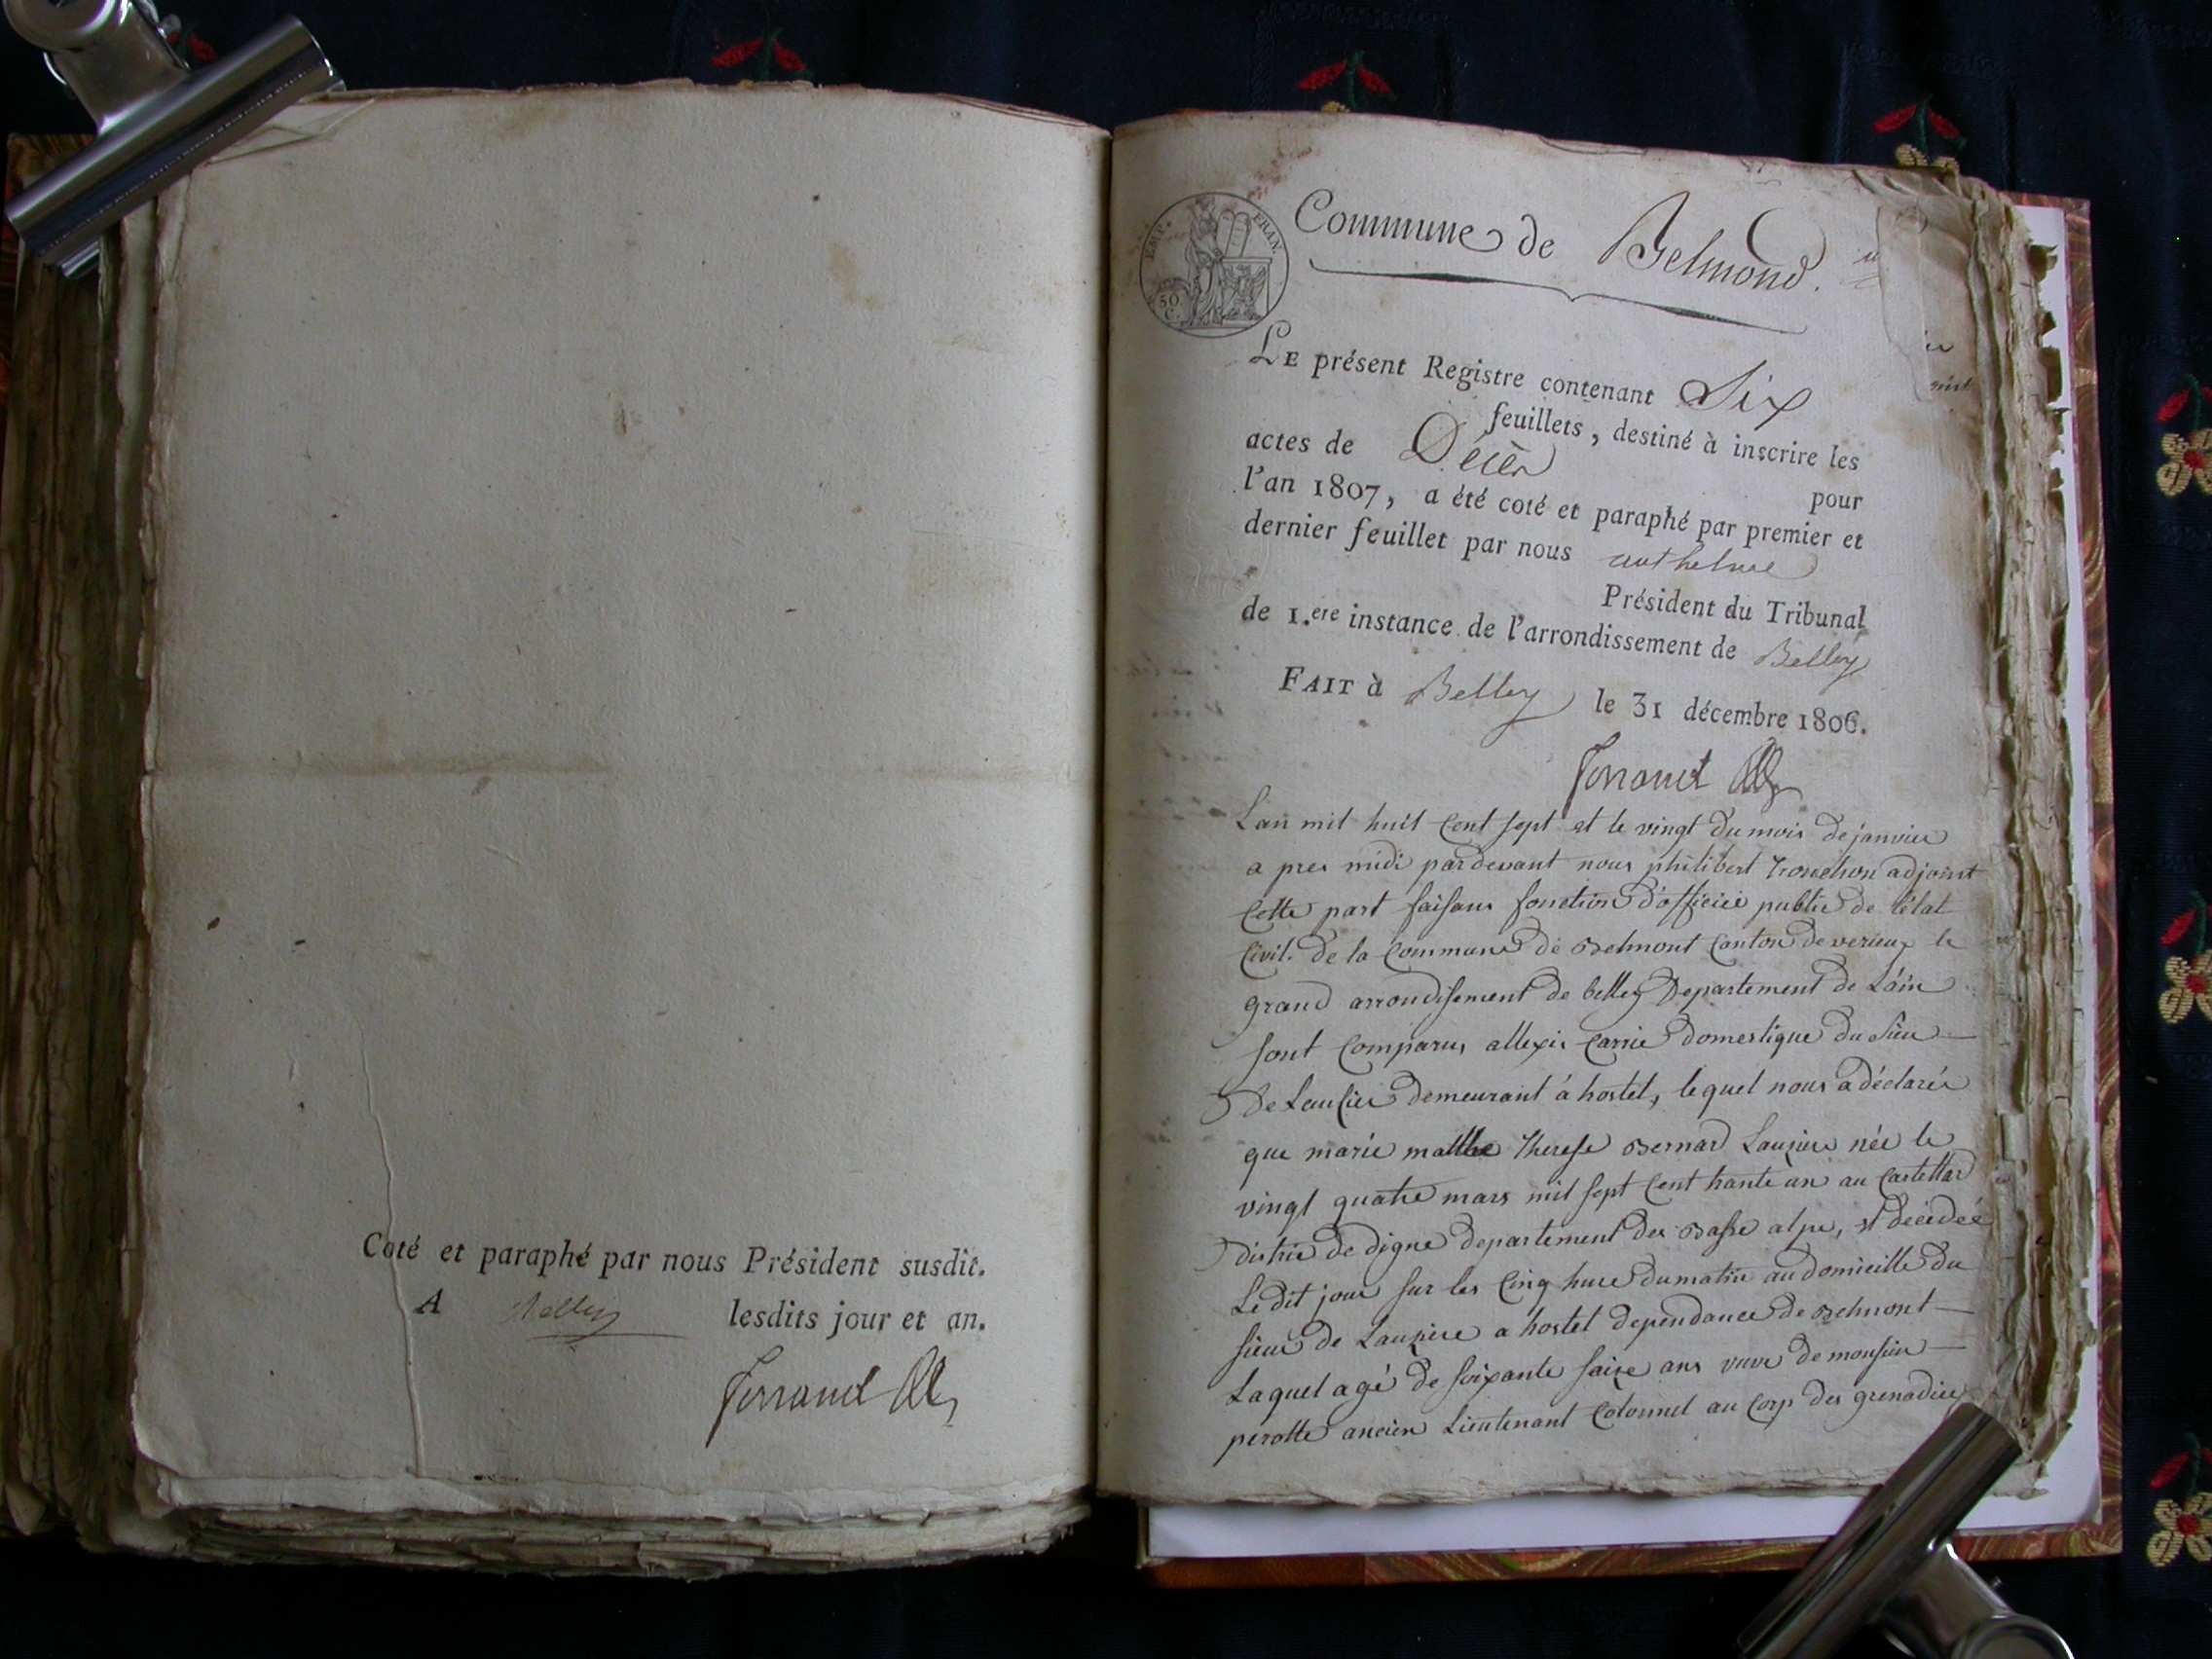 Coté et paraphé par nous Président susdit.
A Belley lesdits jour et an.
EMP. FRAN.
50 C.
Commune de Belmond.
LE présent Registre contenant Six
feuillets, destiné à inscrire les
actes de Décès pour
l'an 1807, a été coté et paraphé par premier et
dernier feuillet par nous anthelme
Président du Tribunal
de 1.ere instance de l'arrondissement de Belley
FAIT à Belley le 31 décembre 1806.
Lan mil huit Cent sept et le vingt du mois de janvier
a pres midi pardevant nous philibert adjoint
Cette part faisans fonction d'officier public de létat
Civil. de la Commune de Belmont Canton de verieux le
grand arrondisement de belley Departement de Láin
sont Comparus allexis Carrie domestique du sieu
De Lauzier demeurant á hostel, lequel nous a déclarés
que marie Therese Bernard Lauziere née le
vingt quatre mars mil sept Cent trante un au Castellar
distric de digne departement des Basse alpe, et décédée
Le dit jour sur les Cinq hure du matin au domicille du
sieur de Lauziere a hostel dependance de Belmont
Laquel agé de soixante saize ans vuve de monsieu
perotte ancien Lieutenant Colonnel au Corp des grenadier